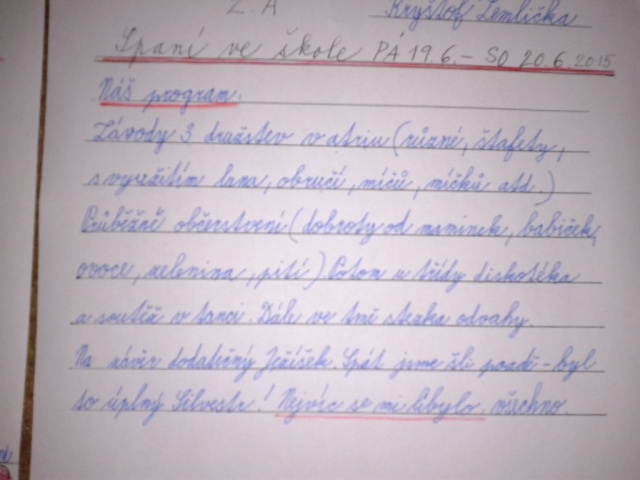 2.A Kryštof Zemlička
Spaní ve škole PÁ 19.6. - SO 20.6.2015
Náš program:
Závody 3 družstev v atriu (různé, štafety,
s využitím lana, obručí, míčů, míčků atd.)
Průběžně občerstvení (dobroty od maminek, babiček,
ovoce, zelenina, pití). Potom u třídy diskotéka
a soutěž v tanci. Dále ve tmě stezka odvahy.
Na závěr dodatečný Ježíšek. Spát jsme šli pozdě - byl
to úplný Silvestr! Nejvíc se mi líbylo všechno.